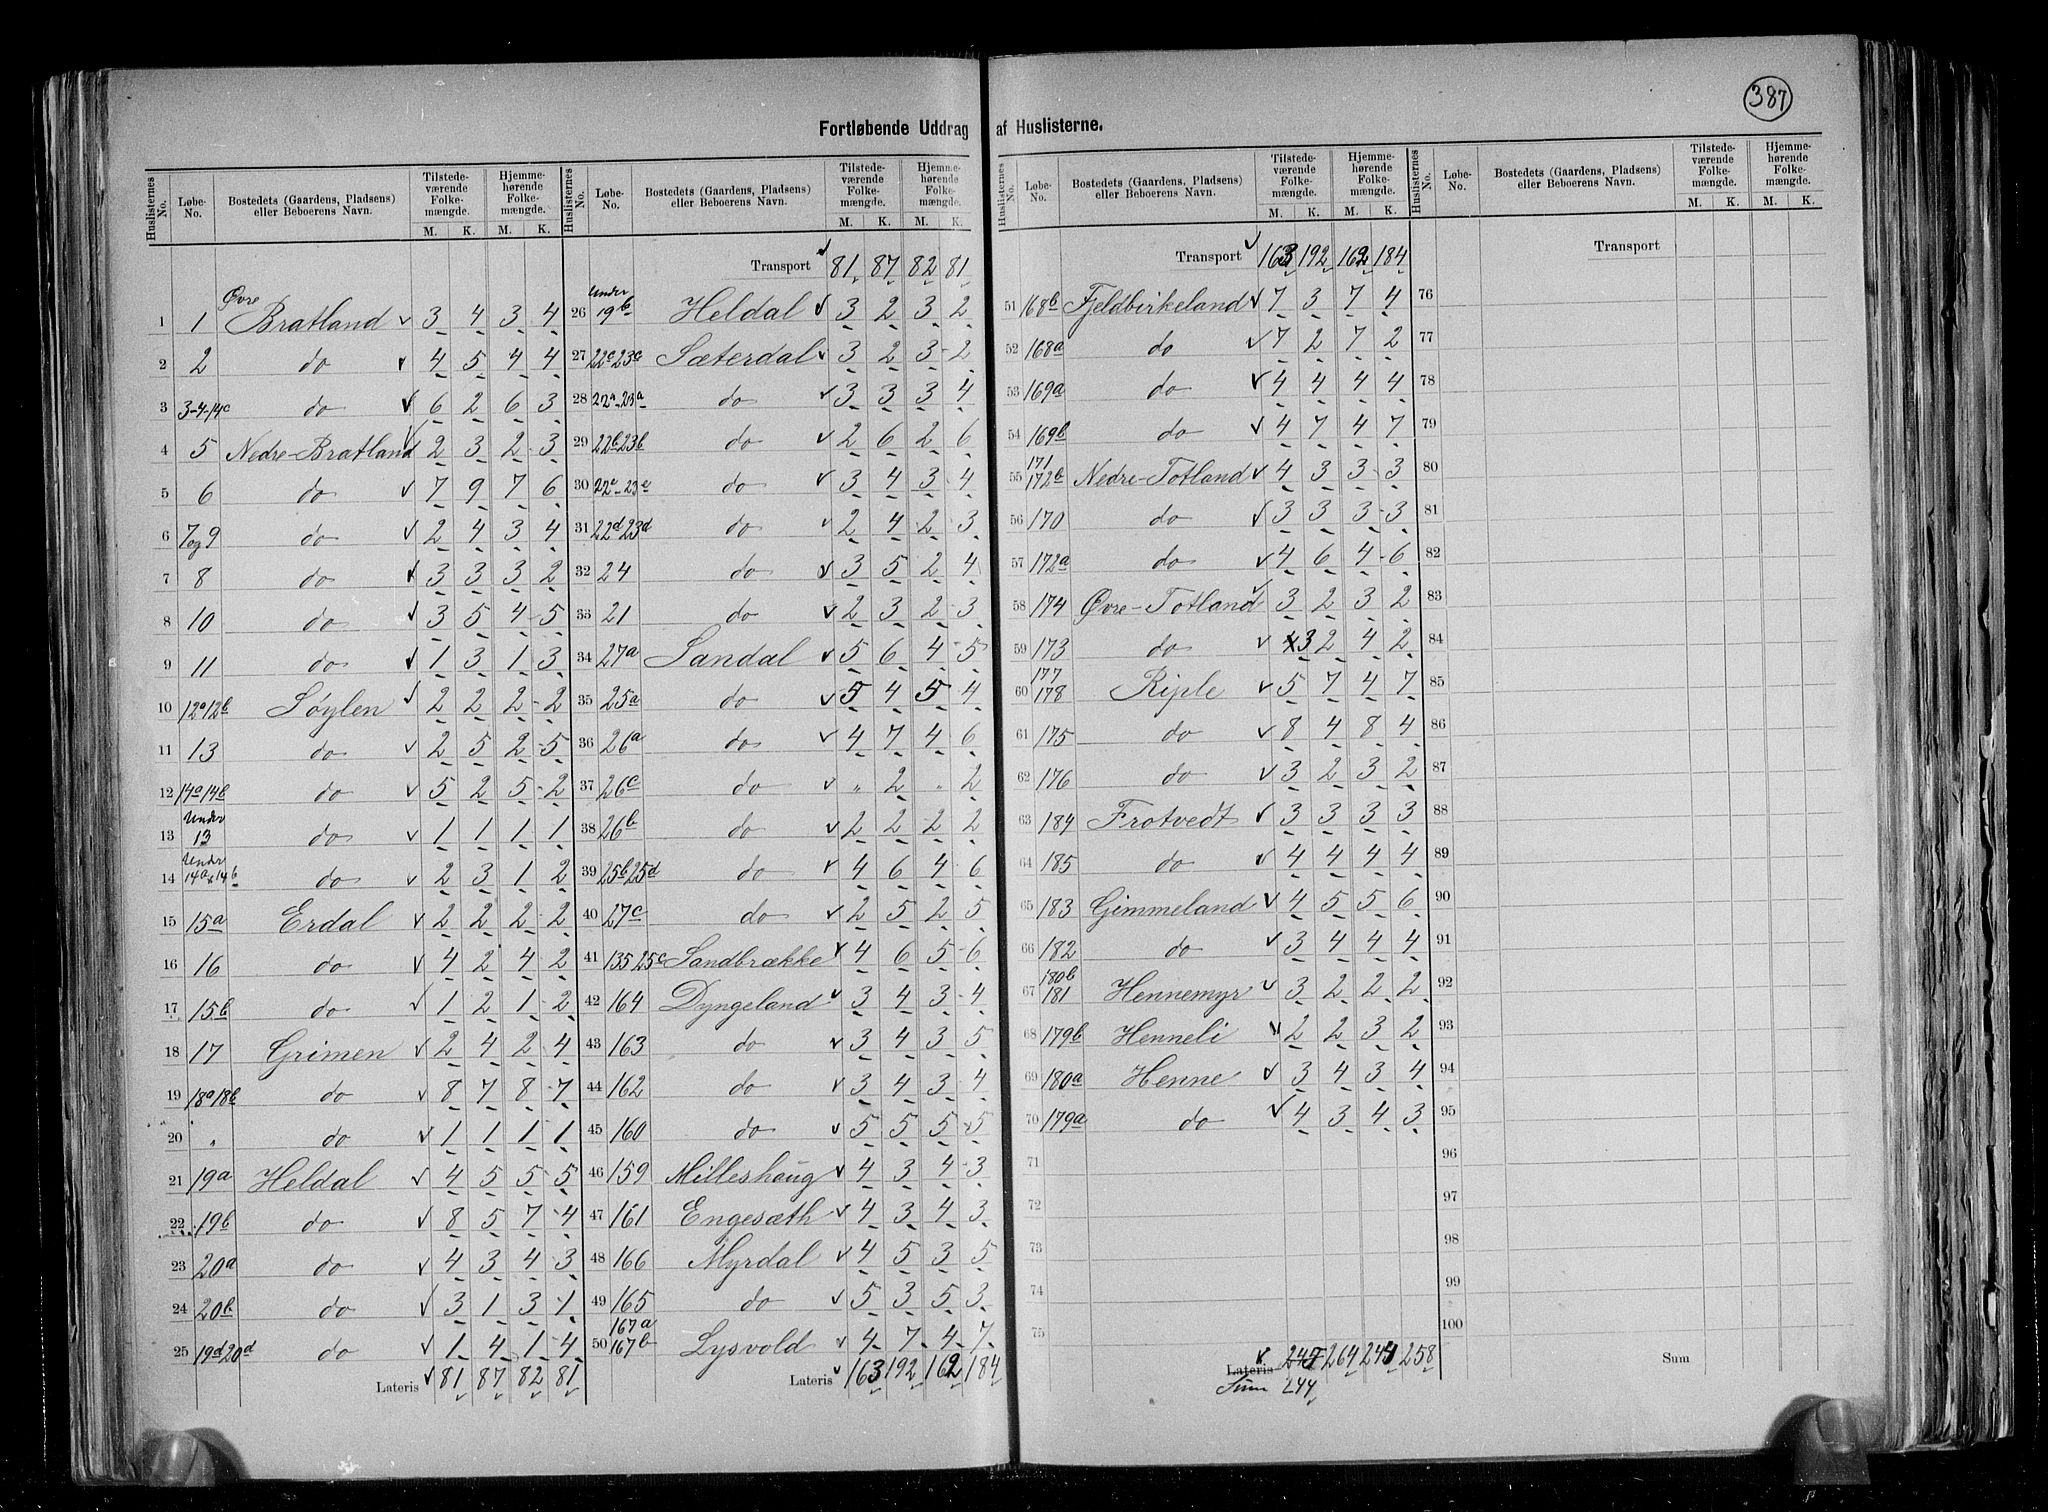 387
Fortløbende Uddrag af Huslisterne.
Huslisternes No. Løbe-No. Bostedets (Gaardens, Pladsens) eller Beboerens Navn. Tilstedeværende Folkemængde. M. K. Hjemmehørende Folkemængde. M. K.
1 1 Øvre Bratland 3 4 3 4
2 2 do 4 5 4 4
3 3-4-14c do 6 2 6 3
4 5 Nedre-Bratland 2 3 2 3
5 6 do 7 9 7 6
6 7 og 9 do 2 4 3 4
7 8 do 3 3 3 2
8 10 do 3 5 4 5
9 11 do 1 3 1 3
10 12a 12b Søylen 2 2 2 2
11 13 do 2 5 2 5
12 14a 14b do 5 2 5 2
13 Under 13 do 1 1 1 1
14 Under 14a & 14b do 2 3 1 2
15 15a Erdal 2 2 2 2
16 16 do 4 2 4 2
17 15b do 1 2 1 2
18 17 Grimen 2 4 2 4
19 18a 18b do 8 7 8 7
20 " do 1 1 1 1
21 19a Heldal 4 5 5 5
22 19b do 8 5 7 4
23 20a do 4 3 4 3
24 20b do 3 1 3 1
25 19d 20d do 1 4 1 4
Lateris 81 87 82 81
Huslisternes No. Løbe-No. Bostedets (Gaardens, Pladsens) eller Beboerens Navn. Tilstedeværende Folkemængde. M. K. Hjemmehørende Folkemængde. M. K.
Transport 81 87 82 81
26 Under 19b Heldal 3 2 3 2
27 22c 23c Sæterdal 3 2 3 2
28 22a-23a do 3 3 3 4
29 22b 23b do 2 6 2 6
30 22e-23e do 3 4 3 4
31 22d 23d do 2 4 2 3
32 24 do 3 5 2 4
33 21 do 2 3 2 3
34 27a Sandal 5 6 4 5
35 25a do 5 4 5 4
36 26a do 4 7 4 6
37 26c do " 2 " 2
38 26b do 2 2 2 2
39 25b 25d do 4 6 4 6
40 27c do 2 5 2 5
41 135 25c Sandbrække 4 6 5 6
42 164 Dyngeland 3 4 3 4
43 163 do 3 4 3 5
44 162 do 3 4 3 4
45 160 do 5 5 5 5
46 159 Milleshaug 4 3 4 3
47 161 Engesæth 4 3 4 3
48 166 Myrdal 4 5 3 5
49 165 do 5 3 5 3
50 167a 167b Lysvold 4 7 4 7
Lateris 163 192 162 184
Huslisternes No. Løbe-No. Bostedets (Gaardens, Pladsens) eller Beboerens Navn. Tilstedeværende Folkemængde. M. K. Hjemmehørende Folkemængde. M. K.
Transport 163 192 162 184
51 168b Fjeldbirkeland 7 3 7 4
52 168a do 7 2 7 2
53 169a do 4 4 4 4
54 169b do 4 7 4 7
55 171 172b Nedre-Totland 4 3 3 3
56 170 do 3 3 3 3
57 172a do 4 6 4 6
58 174 Øvre-Totland 3 2 3 2
59 173 do 3 2 4 2
60 177 178 Riple 5 7 4 7
61 175 do 8 4 8 4
62 176 do 3 2 3 2
63 184 Frotvedt 3 3 3 3
64 185 do 4 4 4 4
65 183 Gimmeland 4 5 5 6
66 182 do 3 4 4 4
67 180b 181 Hennemyr 3 2 2 2
68 179b Henneli 2 2 3 2
69 180a Henne 3 4 3 4
70 179a do 4 3 4 3
71
72
73
74
75
Lateris 245 264 241 258
Sum 244
Huslisternes No. Løbe-No. Bostedets (Gaardens, Pladsens) eller Beboerens Navn. Tilstedeværende Folkemængde. M. K. Hjemmehørende Folkemængde. M. K.
Transport
76
77
78
79
80
81
82
83
84
85
86
87
88
89
90
91
92
93
94
95
96
97
98
99
100
Sum